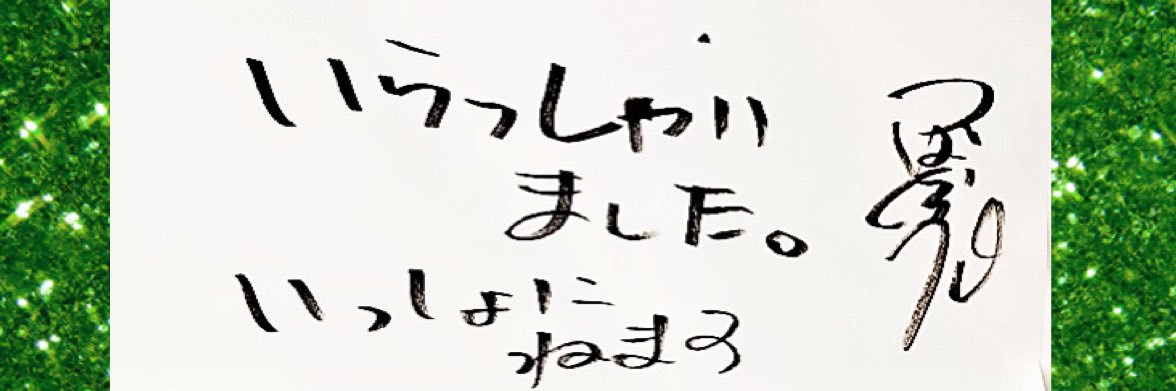 いらっしゃい
ました。
いっしょに